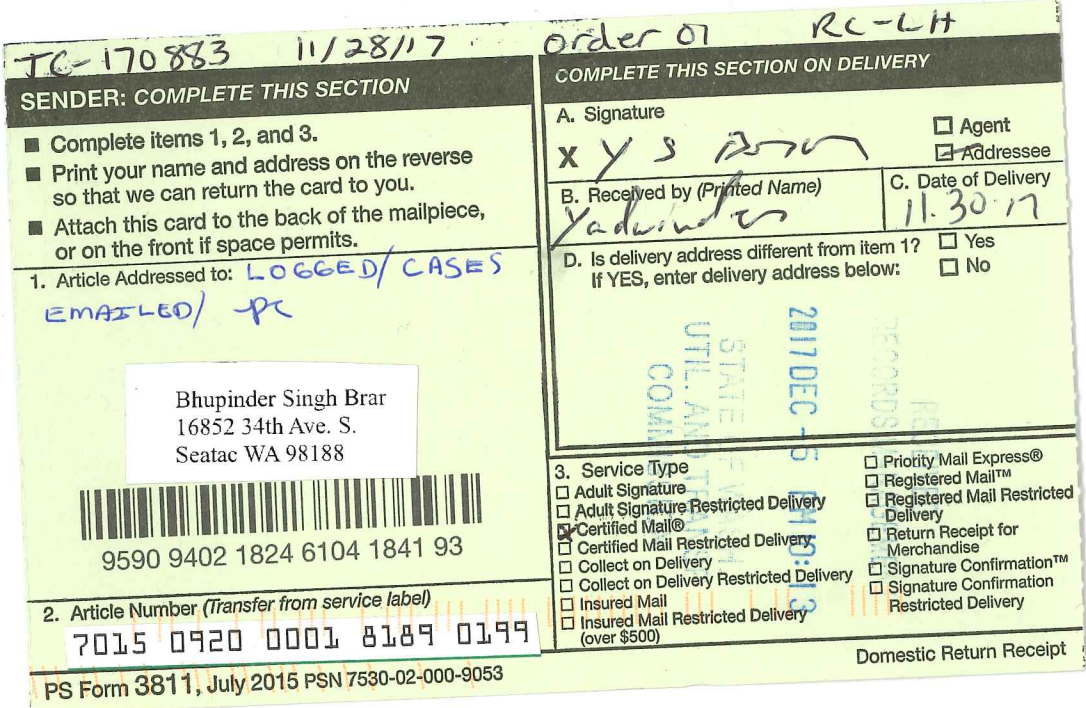 TC-170883 11/28/17 order 01 RC-LH
SENDER: COMPLETE THIS SECTION
■ Complete items 1, 2, and 3.
■ Print your name and address on the reverse
so that we can return the card to you.
■ Attach this card to the back of the mailpiece,
or on the front if space permits.
1. Article Addressed to: LOGGED/ CASES
EMAILED/ -pc
Bhupinder Singh Brar
16852 34th Ave. S.
Seatac WA 98188
9590 9402 1824 6104 1841 93
2. Article Number (Transfer from service label)
7015 0920 0001 8189 0199
PS Form 3811, July 2015 PSN 7530-02-000-9053
COMPLETE THIS SECTION ON DELIVERY
A. Signature
X Y S
☐ Agent
☐ Addressee
B. Received by (Printed Name)
Yadwinder
C. Date of Delivery
11.30.17
D. Is delivery address different from item 1? ☐ Yes
If YES, enter delivery address below: ☐ No
2017 DEC -6 AM 10:13
STATE OF WASH
UTIL. AND TRANSP
3. Service Type
☐ Adult Signature
☐ Adult Signature Restricted Delivery
☒ Certified Mail®
☐ Certified Mail Restricted Delivery
☐ Collect on Delivery
☐ Collect on Delivery Restricted Delivery
☐ Insured Mail
☐ Insured Mail Restricted Delivery
(over $500)
☐ Priority Mail Express®
☐ Registered Mail™
☐ Registered Mail Restricted
Delivery
☐ Return Receipt for
Merchandise
☐ Signature Confirmation™
☐ Signature Confirmation
Restricted Delivery
Domestic Return Receipt